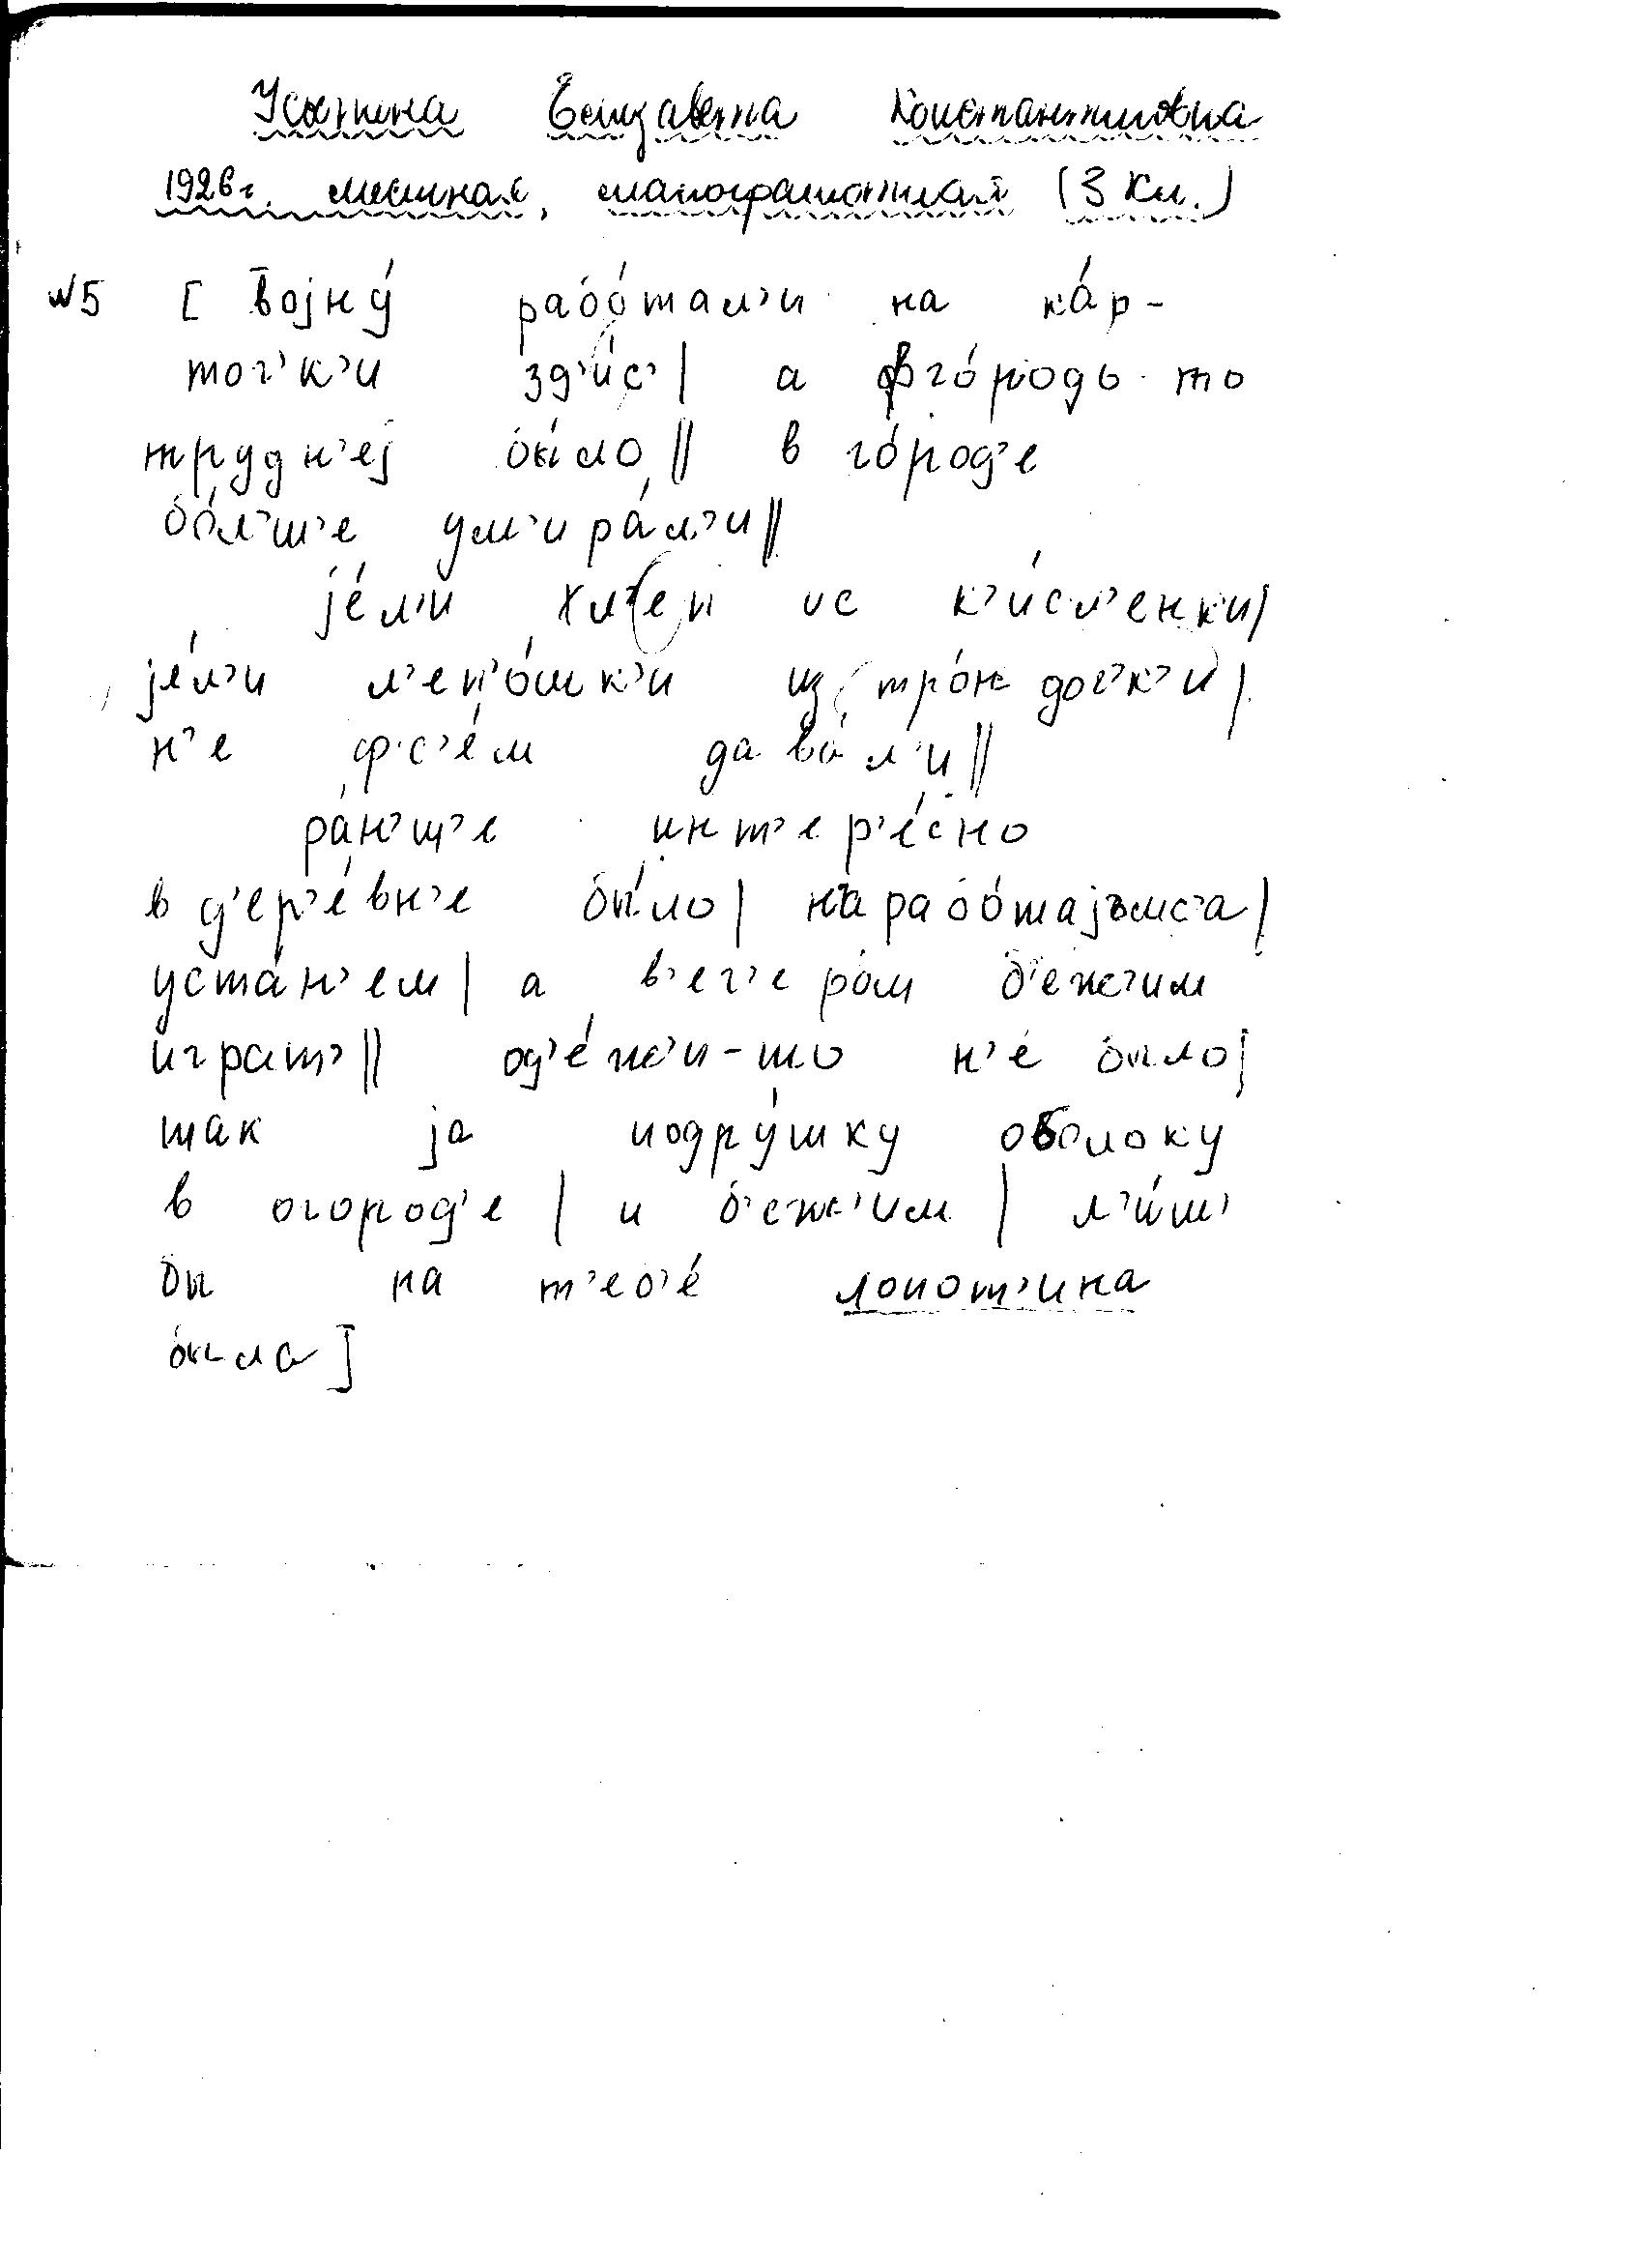 Елизавета Константиновна
1926г. местная, малограмотная (3 кл.)
№5 [ в̄оjну́ рабо́тал'и на ка́р-
точ'к'и зд'и́с' | а вго́родь-то
трудн'еj бы́ло || в го́род'е
бо́л'ш'е ум'ира́л'и ||
jе́л'и хл'еп ис к'и́сл'енки |
jе́л'и л'еп'о́шк'и из тро́н доч'к'и |
н'е ф'с'е́м дава́л'и ||
ра́н'ш'е инт'ер'е́сно
в д'ер'е́вн'е бы́ло | нърабо́таjьмс'а |
уста́н'ем | а в'еч'ером б'еж'им
играт' || од'е́ж'и-то н'е́ было |
так jа подру́шку оболоку
в огород'е | и б'еж'им | л'и́ш'
бы на т'еб'е́ лопот'ина
была ]